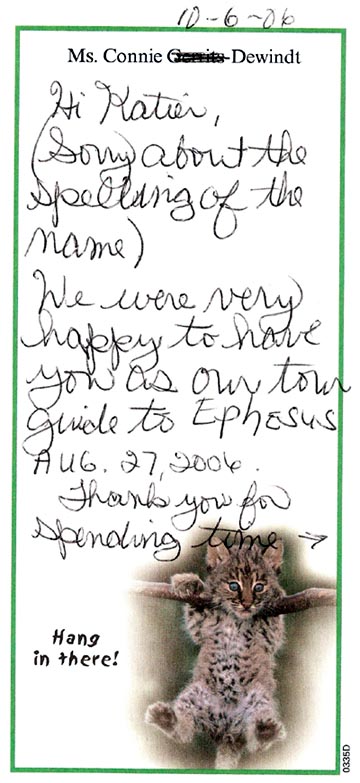 10-6-06
Ms. Connie Gerrits Dewindt
Hi Katier,
(Sorry about the
spelling of the
name)
We were very
happy to have
you as our tour
guide to Ephosus
AUG. 27, 2006.
Thank you for
spending time →
Hang
in there!
0335D